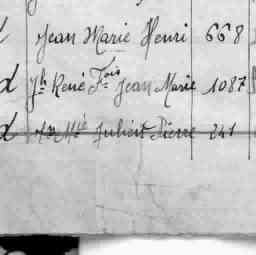 d Jean Marie Henri 668
d Jh René Fois Jean Marie 1087
d Mie Juliett Pierre 241